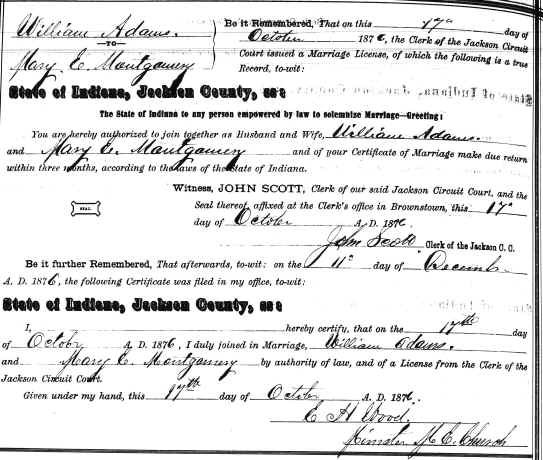 William Adams.
—TO—
Mary E. Montgomery
Be it Remembered, That on this 17th day of
October 1876, the Clerk of the Jackson Circuit
Court issued a Marriage License, of which the following is a true
Record, to-wit:
State of Indiana, Jackson County, ss:
The State of Indiana to any person empowered by law to solemnize Marriage—Greeting:
You are hereby authorized to join together as Husband and Wife, William Adams.
and Mary E. Montgomery and of your Certificate of Marriage make due return
within three months, according to the laws of the State of Indiana.
Witness, JOHN SCOTT, Clerk of our said Jackson Circuit Court, and the
SEAL.
Seal thereof, affixed at the Clerk's office in Brownstown, this 17th
day of October A. D. 1876
John Scott Clerk of the Jackson C. C.
Be it further Remembered, That afterwards, to-wit: on the 11th day of Decemb.
A. D. 1876, the following Certificate was filed in my office, to-wit:
State of Indiana, Jackson County, ss:
I, hereby certify, that on the 17th day
of October A. D. 1876, I duly joined in Marriage, William Adams.
and Mary E. Montgomery by authority of law, and of a License from the Clerk of the
Jackson Circuit Court.
Given under my hand, this 17th day of October A. D. 1876.
E H Wood.
Minister M. E. Church